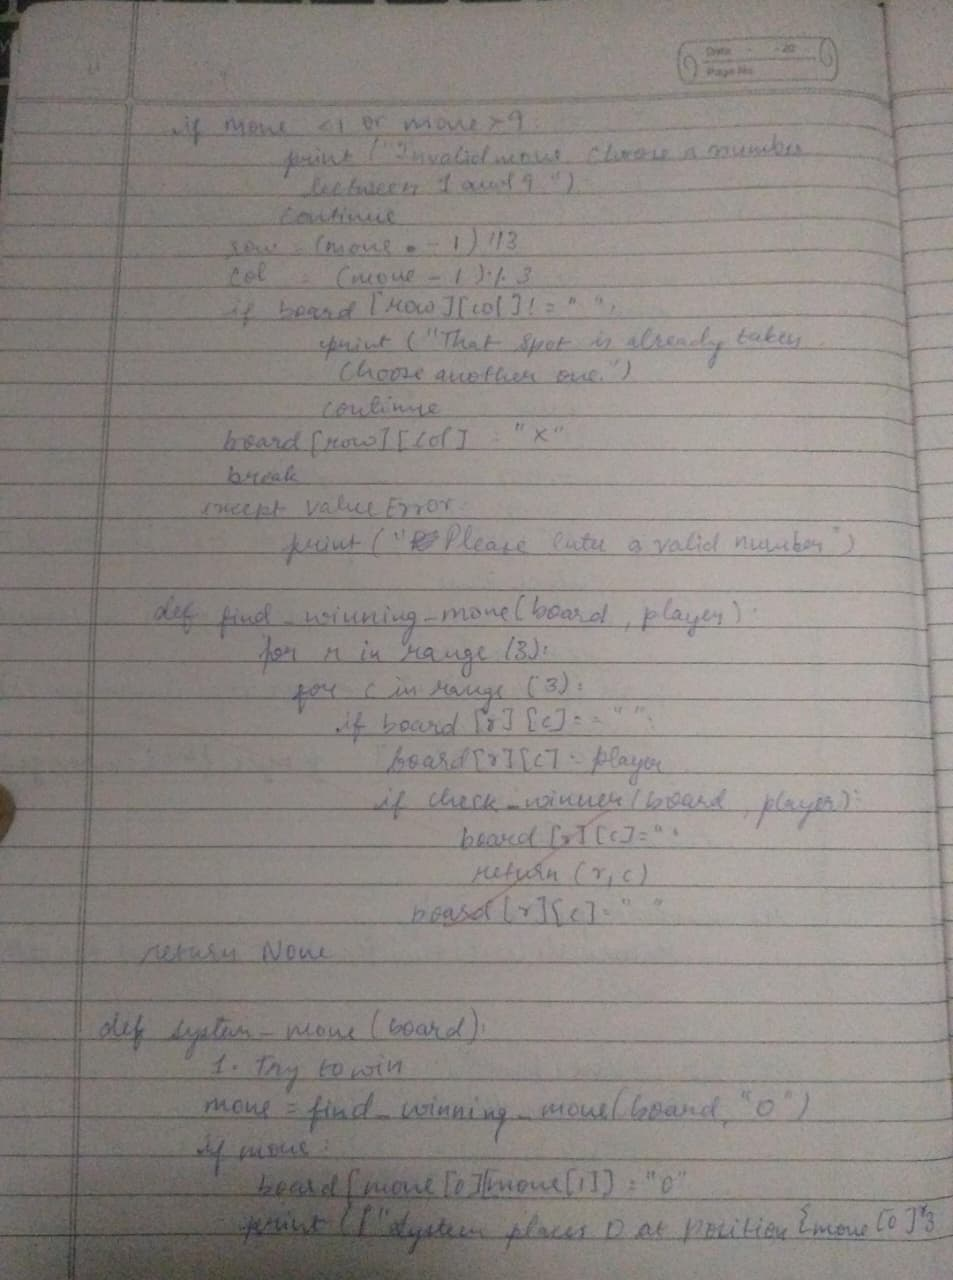 Date - - 20
Page No.
if move <1 or move >9:
print ("Invalid move choose a number
between 1 and 9.")
continue
row = (move - 1) //3
col = (move - 1) % 3
if board [row][col] != " ":
print ("That spot is already taken
Choose another one.")
continue
board [row][col] = "X"
break
except value Error:
print ("Please enter a valid number")
def find_winning_move(board, player):
for r in range (3):
for c in range (3):
if board [r][c] == " ":
board[r][c] = player
if check_winner(board, player):
board [r][c]=" "
return (r,c)
board [r][c]=" "
return None
def system_move (board):
1. Try to win
move = find_winning_move(board, "O")
if move:
board[move[0]][move[1]] = "O"
print (f"System places O at position {move[0]*3